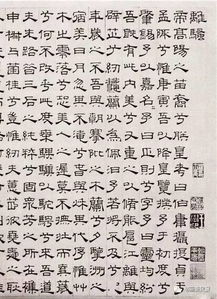 離騷
帝高陽之苗裔兮朕皇考曰伯庸攝提貞于
孟陬兮惟庚寅吾以降皇覽揆余于初度兮
肇錫余以嘉名名余曰正則兮字余曰靈均紛
吾既有此內美兮又重之以脩能扈江離與
辟芷兮紉秋蘭以為佩汩余若將不及兮恐
年歲之不吾與朝搴阰之木蘭兮夕攬洲之
宿莽日月忽其不淹兮春與秋其代序惟草
木之零落兮恐美人之遲暮不撫壯而棄穢
兮何不改乎此度乘騏驥以馳騁兮來吾道
夫先路昔三后之純粹兮固眾芳之所在雜
申椒與菌桂兮豈維紉夫蕙茝彼堯舜之